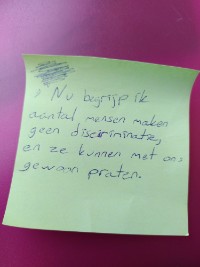 , Nu begrijp ik
aantal mensen maken
geen discriminatie,
en ze kunnen met ons
gewoon praten.